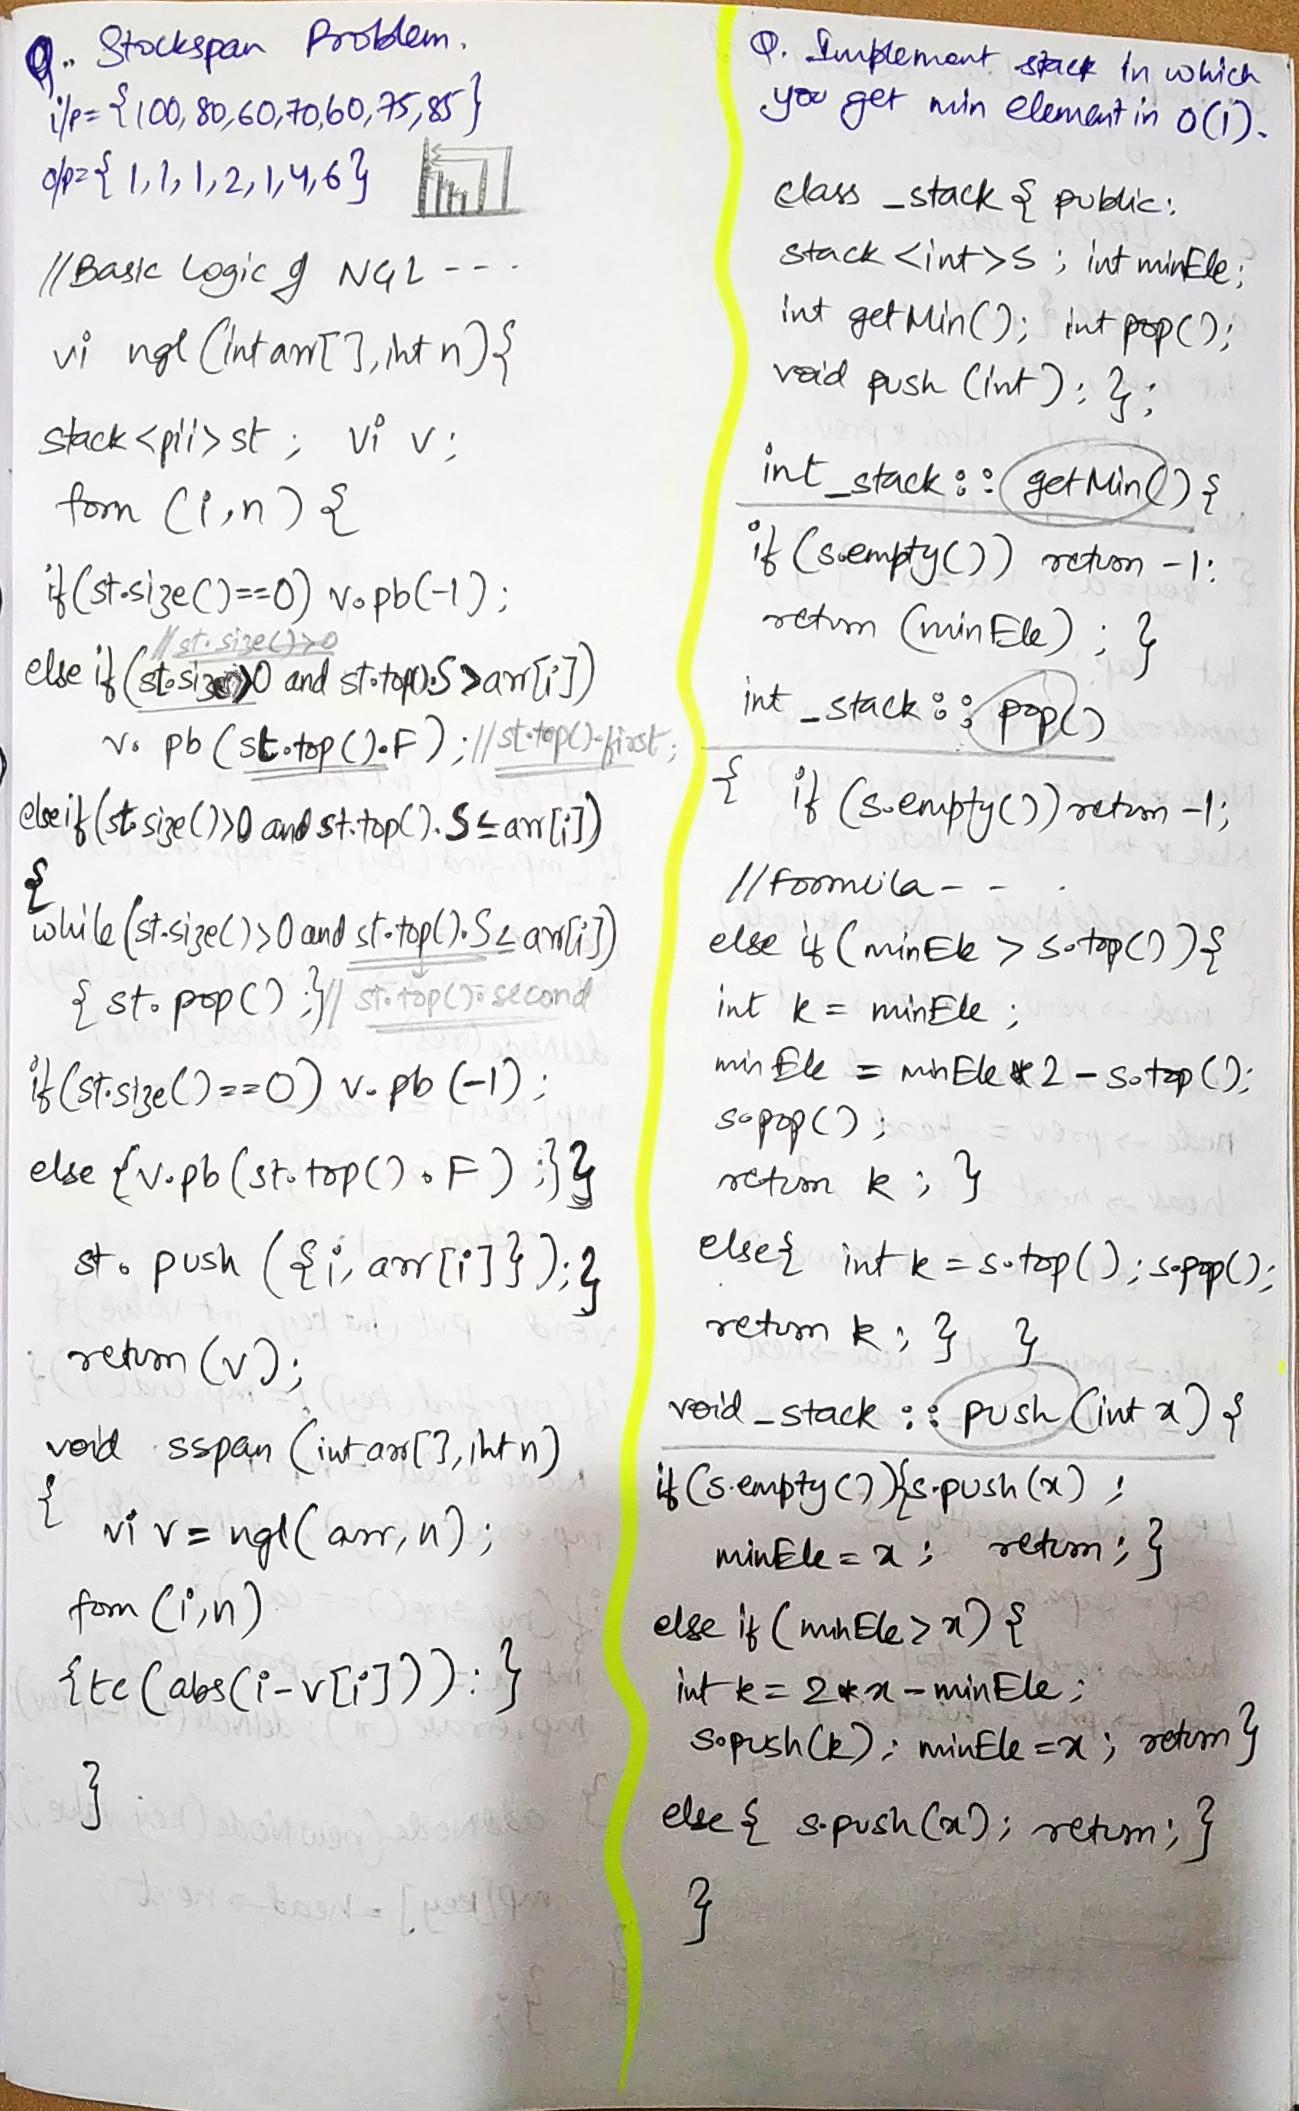 Q. Stockspan Problem.
i/p = {100, 80, 60, 70, 60, 75, 85}
o/p = {1, 1, 1, 2, 1, 4, 6}
//Basic Logic of NGL ---
vi ngl (int arr[], int n){
stack <pii> st ; vi v ;
forn (i,n) {
if (st.size()==0) v.pb(-1) ;
//st.size()>0
else if (st.size()>0 and st.top().S > arr[i])
v. pb (st.top().F) ; //st.top().first ;
else if (st.size()>0 and st.top().S ≤ arr[i])
{
while (st.size()>0 and st.top().S ≤ arr[i])
{ st. pop() ;} // st.top().second
if (st.size()==0) v. pb (-1) ;
else {v.pb (st.top().F) ;}}
st. push ({i, arr[i]}) ;}
return (v) ;
void sspan (int arr[], int n)
{
vi v = ngl( arr, n) ;
forn (i,n)
{te (abs(i-v[i])) ; }
}
Q. Implement stack in which
you get min element in O(1).
class _stack { public:
stack <int>s ; int minEle ;
int getMin() ; int pop() ;
void push (int) ; } ;
int _stack :: getMin() {
if (s.empty()) return -1 ;
return (minEle) ; }
int _stack :: pop()
{ if (s.empty()) return -1 ;
// Formula - - .
else if (minEle > s.top()) {
int k = minEle ;
minEle = minEle * 2 - s.top() ;
s.pop() ;
return k ; }
else{ int k = s.top() ; s.pop() ;
return k ; } }
void _stack :: push (int x) {
if (s.empty()){s.push (x) ;
minEle = x ; return ; }
else if (minEle > x) {
int k = 2*x - minEle ;
s.push(k) ; minEle = x ; return }
else { s.push(x) ; return ; }
}